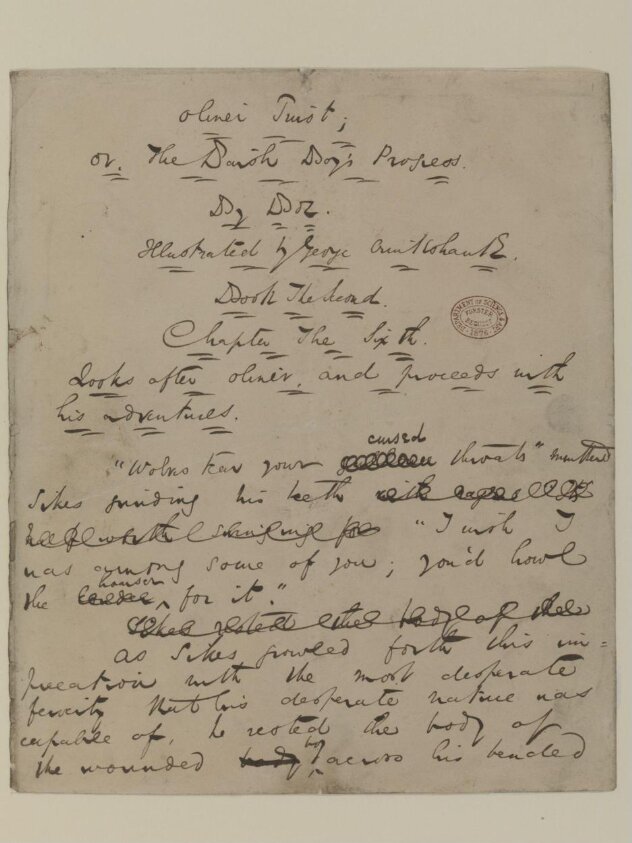 Oliver Twist;
or, The Parish Boy's Progress.
By Boz.
Illustrated by George Cruikshank.
Book The Second.
DEPARTMENT OF SCIENCE & ART
FORSTER BEQUEST 1876
Chapter The Sixth.
Looks after Oliver, and proceeds with
his adventures.
cursed
"Wolves tear your throats" muttered
Sikes grinding his teeth
"I wish I
was among some of you; you'd howl
hoarser
the for it."
Sikes rested the body of the
As Sikes growled forth this im=
precation with the most desperate
ferocity that his desperate nature was
capable of, he rested the body of
boy
the wounded body across his bended